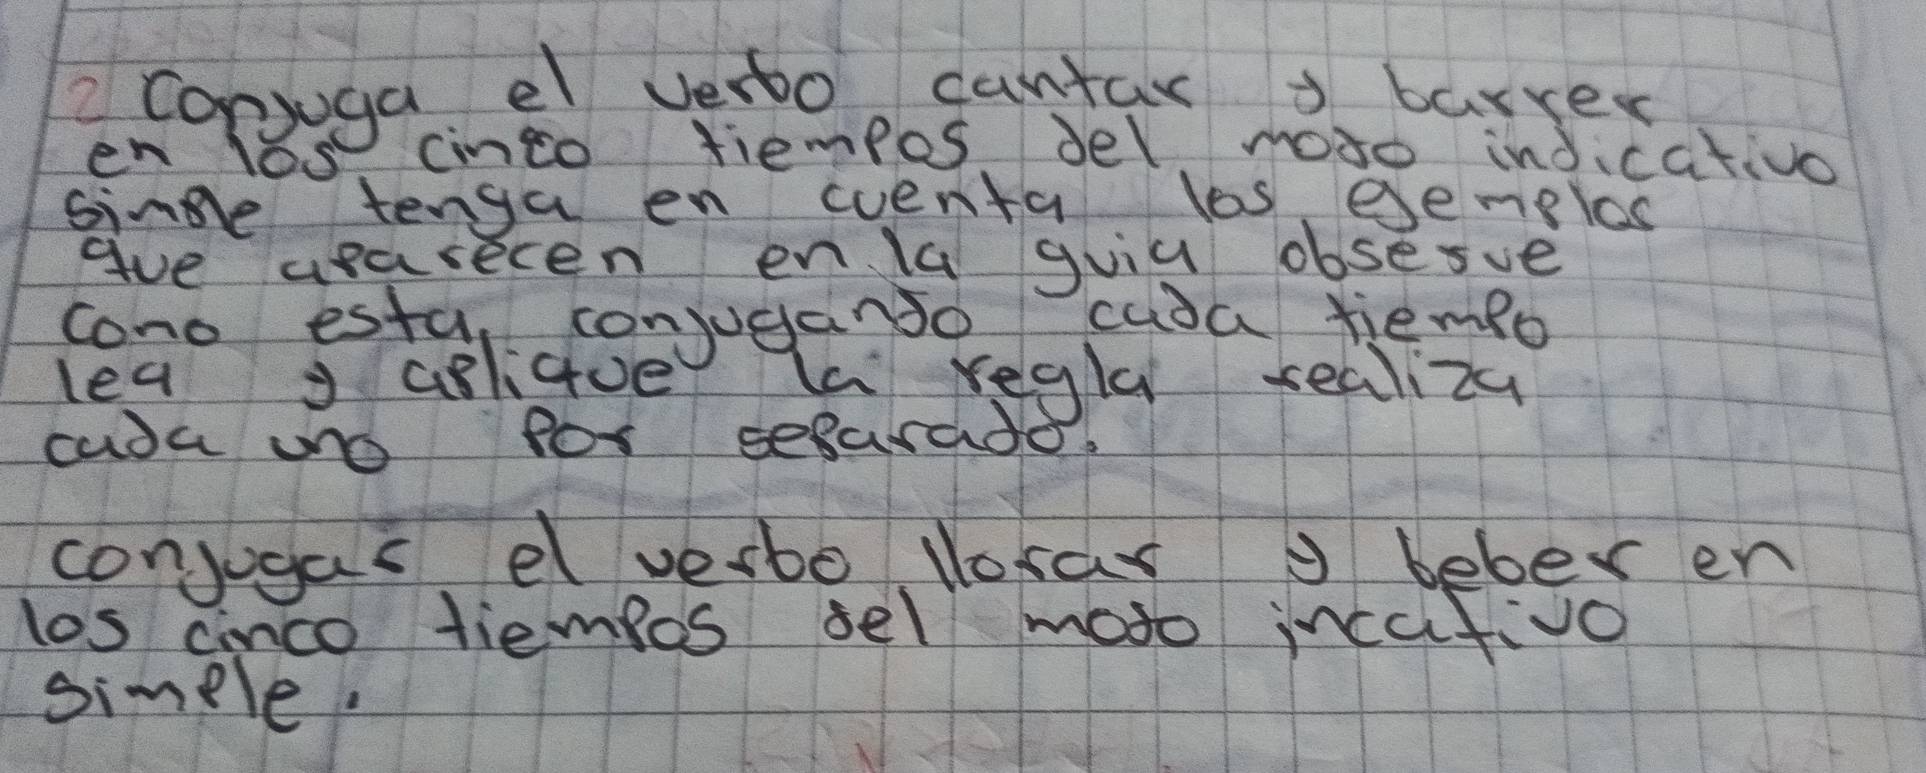 2 Conjuga el verbo cantar y barrer
en los cinco tiempos del modo indicativo
simple tenga en cuenta los egemplos
que aparecen en la guia observe
cono esta conjugando cada tiempo
lea y aplique la regla realiza
cada uno por separado.
conjugar el verbo llorar y beber en
los cinco tiempos del modo incativo
simple.